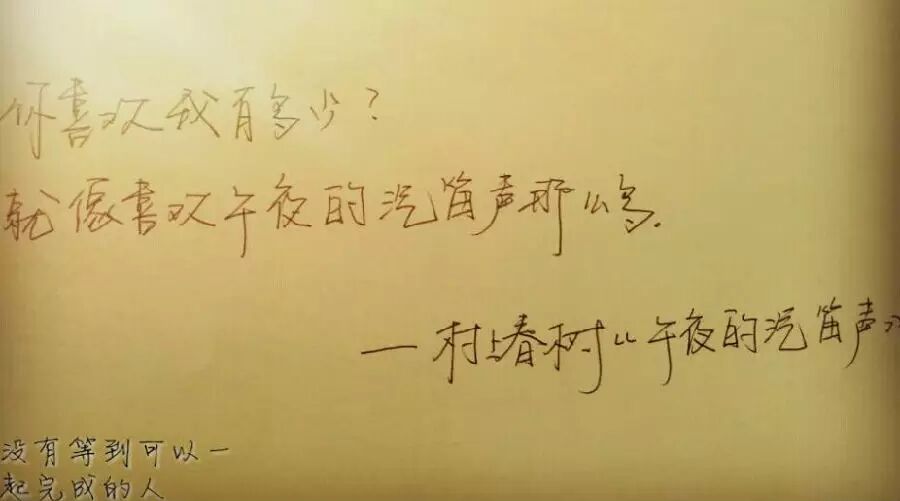 你喜欢我有多少?
就像喜欢午夜的汽笛声那么多.
—村上春树《午夜的汽笛声》
没有等到可以一
起完成的人